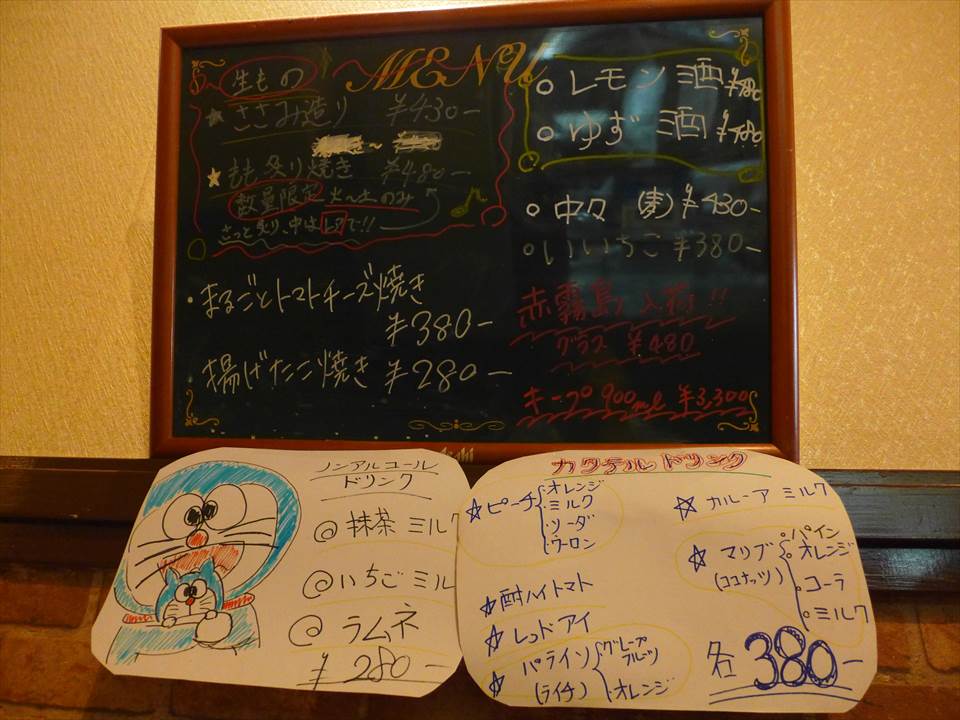 MENU
生もの
★ ささみ造り ¥430-
~
★ もも炙り焼き ¥480-
数量限定 火〜土のみ
さっと炙り、中はレアで!!
・まるごとトマトチーズ焼き
¥380-
・揚げたこ焼き ¥280-
○ レモン酒
○ ゆず酒
○ 中々 (麦) ¥430-
○ いいちこ ¥380-
赤霧島 入荷!!
グラス ¥480
キープ 900ml ¥3,300
ノンアルコール
ドリンク
@ 抹茶ミルク
@ いちごミル
@ ラムネ
¥280-
カクテルドリンク
☆ ピーチ
オレンジ
ミルク
ソーダ
ウーロン
☆ 酎ハイトマト
☆ レッドアイ
☆ パライソ
(ライチ)
グレープ
フルーツ
オレンジ
☆ カルーア ミルク
☆ マリブ
(ココナッツ)
パイン
オレンジ
コーラ
ミルク
各380-